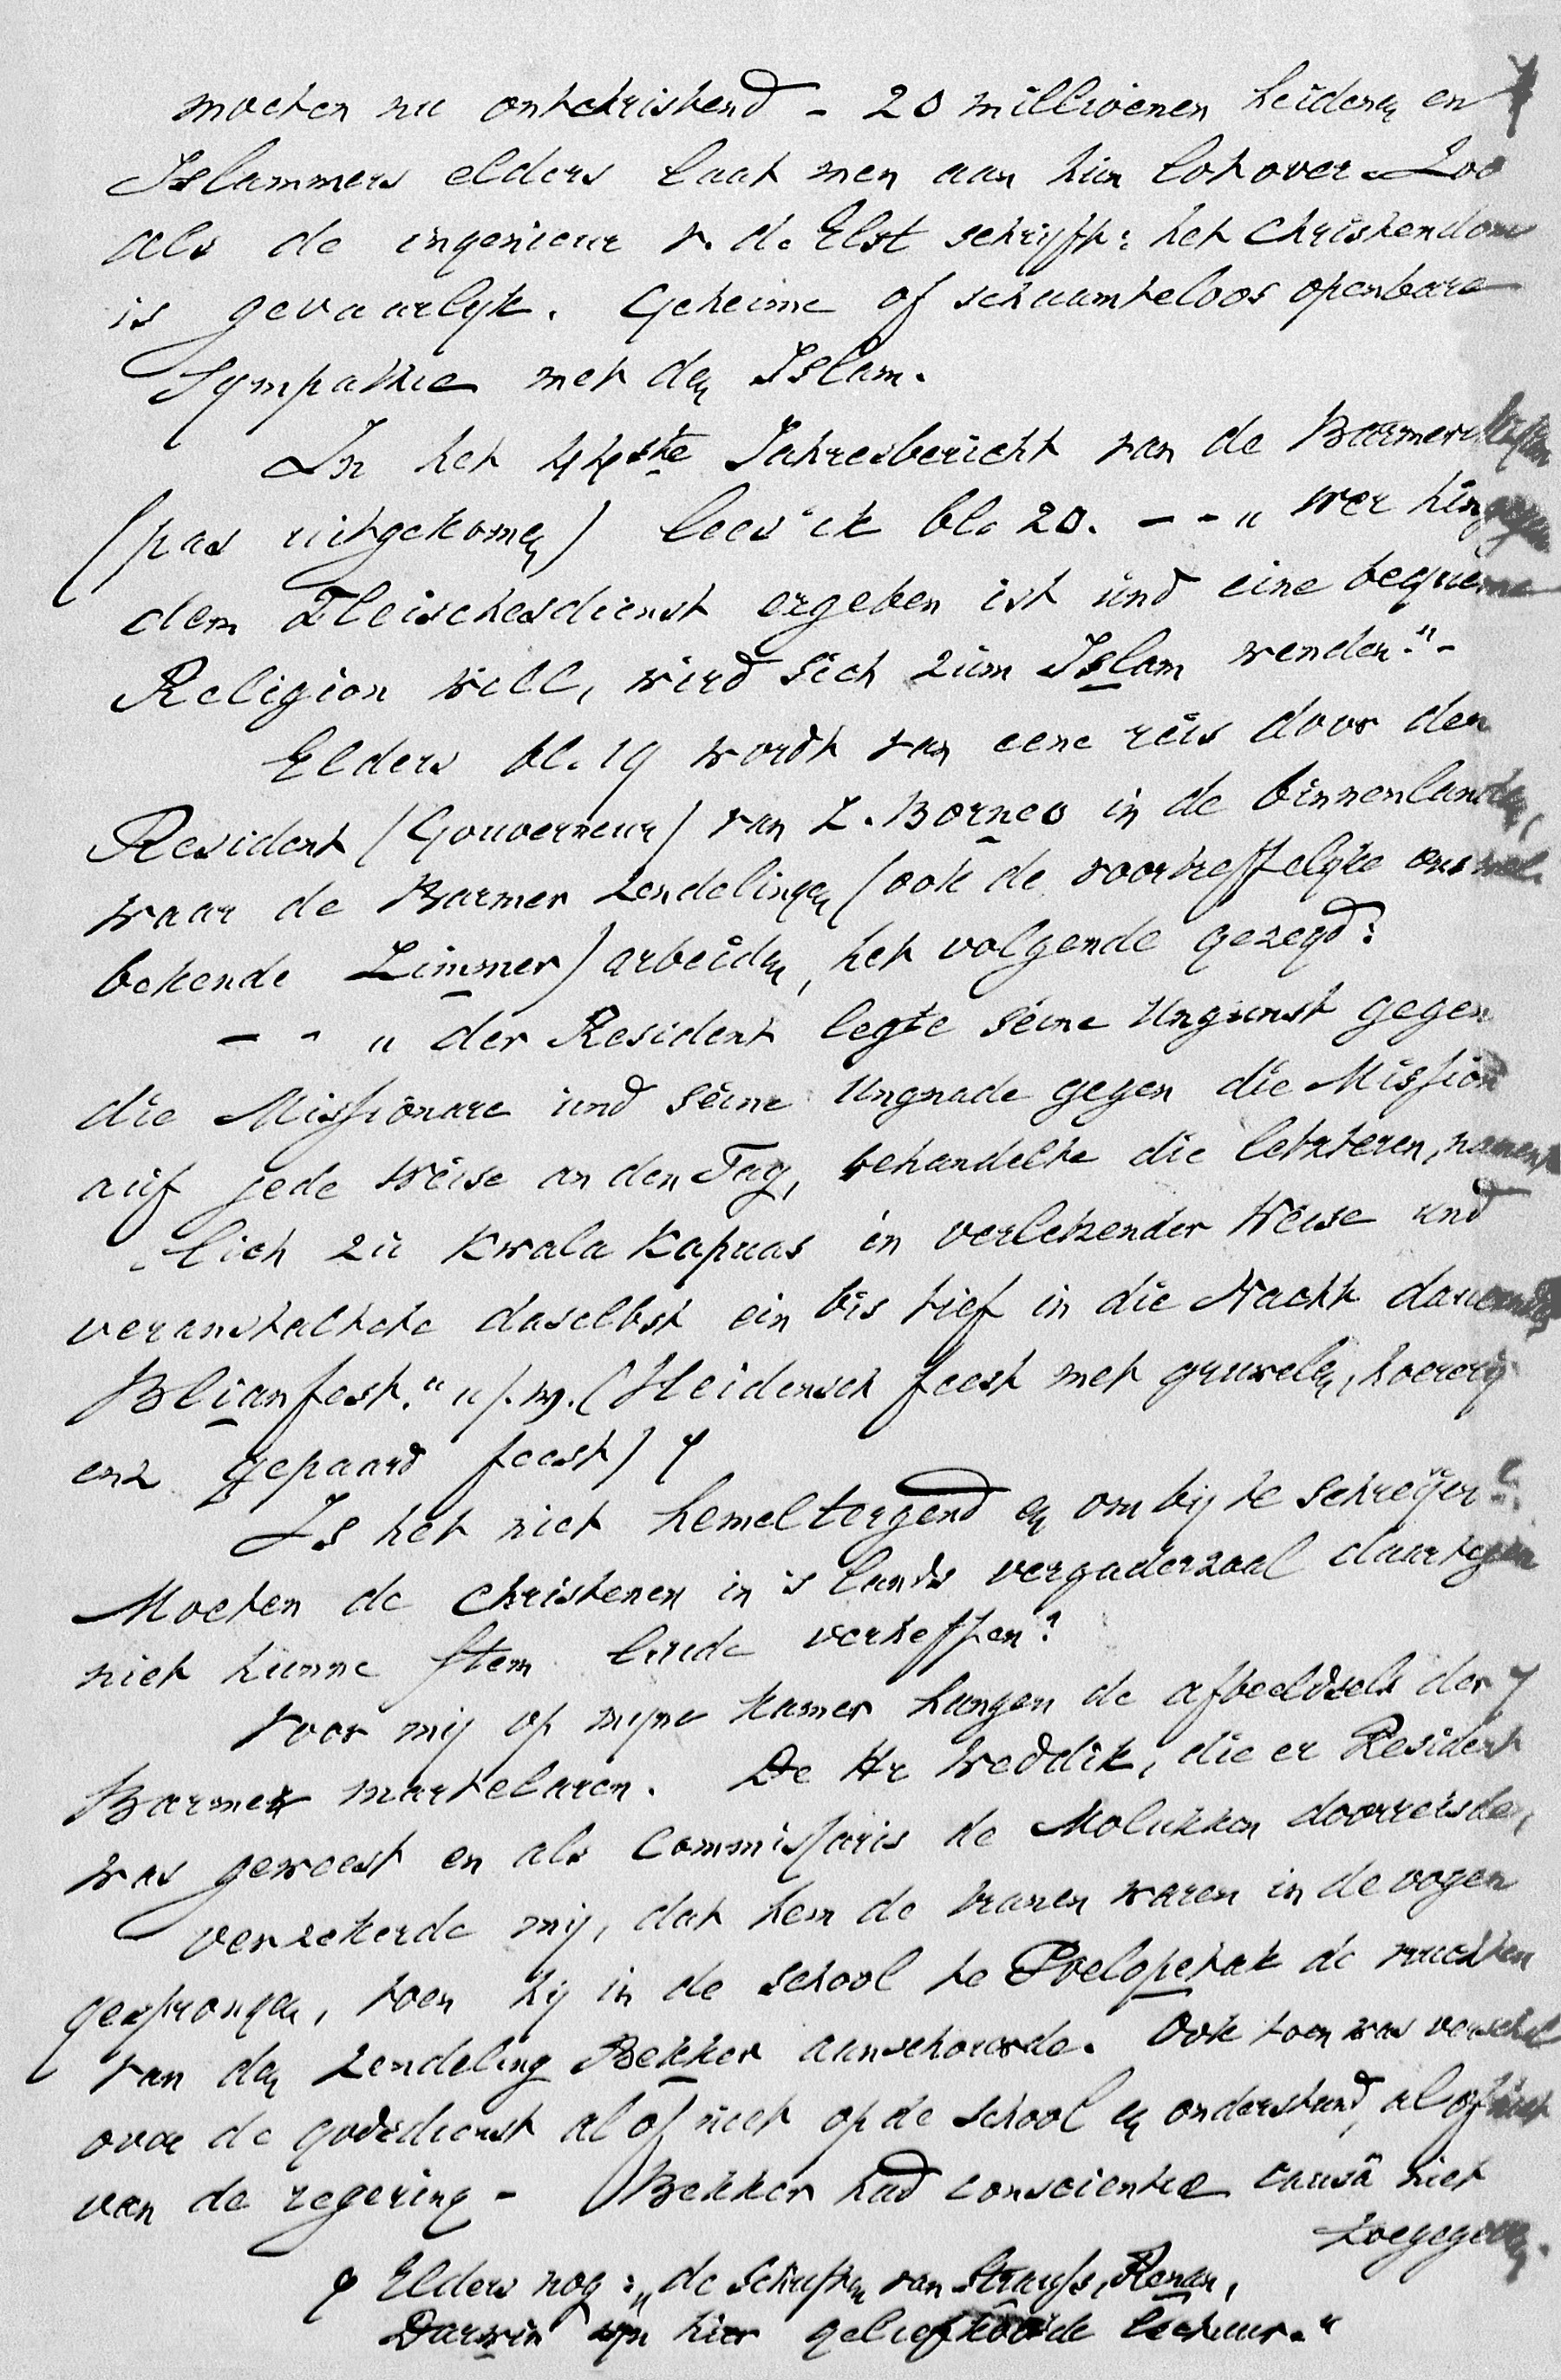 moeten nu ontchristend - 20 millioenen heidenen en
Islammers elders laat men aan hun lot over. Zoo
als de ingenieur v. d. Elst schrijft: het Christendom
is gevaarlijk. Geheime of schaamteloos openbare
Sympathie met den Islam.
In het 44ste Jahresbericht van de Barmer
(pas uitgekomen) lees ik bl. 20. - - " wer hingegen
dem Fleischesdienst ergeben ist und eine bequeme
Religion will, wird sich zum Islam wenden." -
Elders bl. 19 wordt van eene reis door den
Resident (Gouverneur) van Z. Borneo in de binnenlanden,
waar de Barmer Zendelingen (ook de voortreffelijke ons wel
bekende Zimmer) arbeiden, het volgende gezegd:
- - " der Resident legte seine Ungunst gegen
die Missionare und seine Ungnade gegen die Mission
auf jede Weise an den Tag, behandelte die letzteren, nament
lich zu Kwala Kapuas in verletzender Weise und
veranstaltete daselbst ein bis tief in die Nacht dauerndes
Blianfest." u.s.w. (Heidensch feest met gruwelen, hoererij
enz gepaard feest)
Is het niet hemeltergend en om bij te schreijen?
Moeten de Christenen in 's lands vergaderzaal daartegen
niet hunne stem luide verheffen?
Voor mij op mijne kamer hangen de afbeeldsels der
Barmer martelaren. De Hr Weddik, die er Resident
was geweest en als Commissaris de Molukken doorreisde,
verzekerde mij, dat hem de tranen waren in de oogen
gesprongen, toen hij in de school te Poelopetak de vruchten
van den Zendeling Bekker aanschouwde. Ook toen was verschil
over de godsdienst al of niet op de school en onderstand, al of niet
van de regering - Bekker had conscientiae causâ niet
toegegeven.
Elders nog: "de Schriften van Strauss, Renan,
Darwin zijn hier geliefkoosde lectuur."